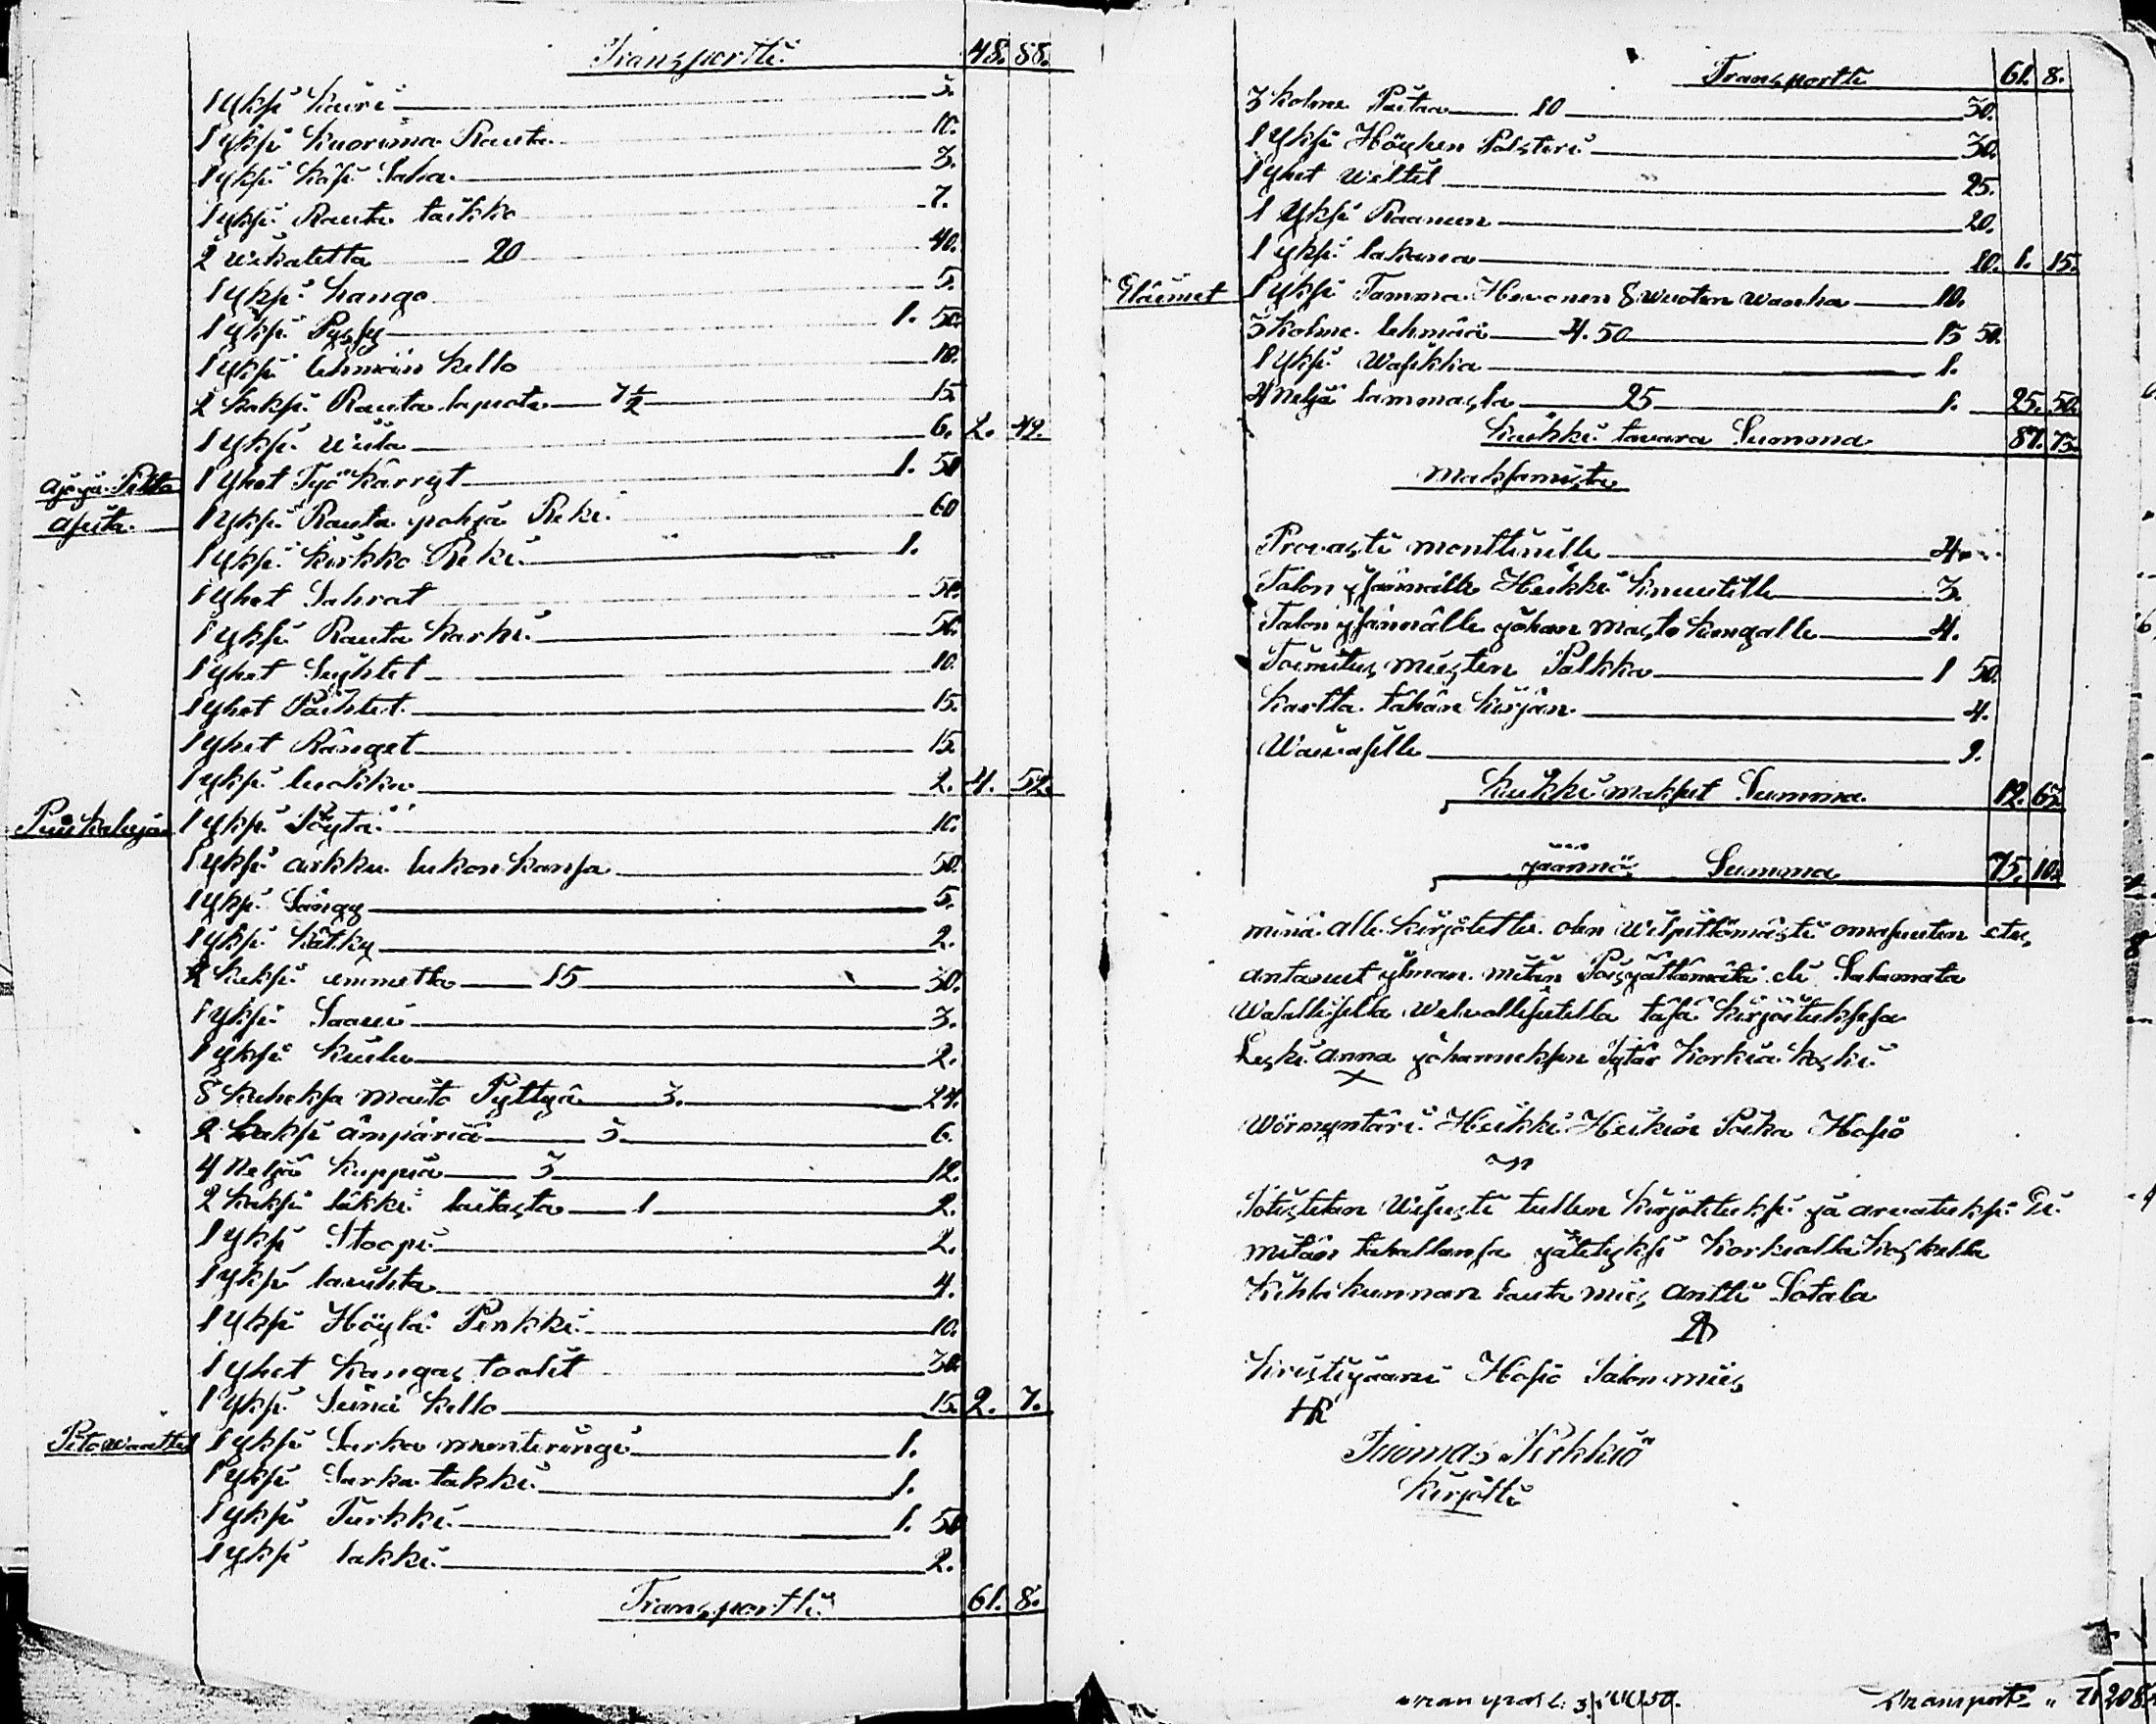 Transportti 48. 88.
1 yksi Kuiri 5.
1 yksi Kuorima Rauta 10.
1 yksi käsi Saha 3.
1 yksi Rauta taikko 7.
2 wikatetta 20 40.
1 yksi hango 5.
1 yksi Pyssy 1. 50.
1 yksi lehmän kello 10.
2 kaksi Rauta lapiota 7½ 15.
1 yksi wiila 6. 2. 49.
Ajo ja Pelto 1 yhet Työ kärryt 1. 50
Aseita. 1 yksi Rauta pohja Reki 60
1 yksi kirkko Reki 1.
1 yhet Sahrat 50.
1 yksi Rauta karhi 50.
1 yhet Sughtet 10.
1 yhet Päihtet 15.
1 yhet Ränget 15.
1 yksi luokka 2. 4. 52.
Puu kaluja 1 yksi Pöytä 10.
1 yksi arkku lukon kansa 50.
1 yksi Sängy 5.
1 yksi kätky 2.
2 kaksi ammetta 15 30.
1 yksi Saavi 3.
1 yksi kiulu 2.
8 kaheksa maito Pyttyä 3. 24.
2 kaksi ämpäriä 3 6.
4 Neljä kuppia 3 12.
2 kaksi läkki lautasta 1 2.
1 yksi Stoopi 2.
1 yksi lawihta 4.
1 yksi Höylä Penkki 10.
1 yhet kangas toolit 30.
1 yksi Seinä kello 15. 2. 7.
Pito waattet 1 yksi Sarka monteringi 1.
1 yksi Sarka takki 1.
1 yksi Turkki 1. 50
1 yksi lakki 2.
Transportti 61. 8.
Transportti 61. 8.
3 kolme Paitaa 10 30.
1 yksi Höyhen Polsteri 30.
1 yhet weltit 25.
1 yksi Raanun 20.
1 yksi lakana 10. 1. 15.
Eläimet 1 yksi Tamma Hewonen 8 wuoten wanha 10.
3 kolme lehmää 4.50 13 50.
1 yksi Wasikka 1.
4 Neljä lammasta 25 1. 25. 50.
Kaikki tawara Summa 87. 73.
Maksamista
Prowasti monttinille 4
Talon ysännälle Heikki Knuutille 3.
Talon ysännälle johan Masto kangalle 4.
Toimitus miesten Palkka 1 50.
Kartta tähän kirjan 4.
Waiwasille 9.
Kaikki maksut Summa 12. 63.
jäännös Summa 75. 10.
minä alle kirjotettu olen wilpittömästi omasuuten etes
antanut ylman mitän Poisjättämätä eli Salamata
Walallisella welwollisutella täsä kirjoituksesa
Leski anna johanneksen tytär Korkia koski
X
Wörmyntäri Heikki Heikin Poika Hosio
Totistetan Wisusti tullen kirjotetuksi ja arwatuksi Ei
mitän tahallansa jätetyksi Korkialla koskella
Kihla kunnan lauta mies Antti Sotala
Kristijaani Hosio Talon mies
Tuomas Kirkkiö
Kirjotti